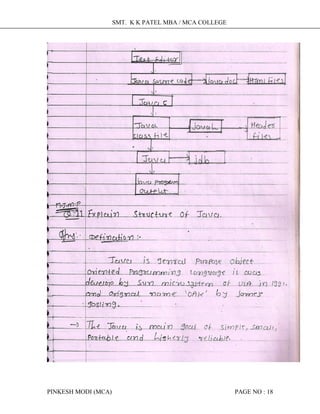 SMT. K K PATEL MBA / MCA COLLEGE
Text Editor
Java Source Code Java doc Html files
Java c
Java class file Java h Header files
Java jdb
Java Program Output
Q.11 Explain Structure Of Java.
Ans:- Defination :-
Java is General Purpose Object
Oriented Programming Language it was
develop by Sun micro system of USA in 1991.
and Original name 'OAK' by James
gosling.
→ The Java is main goal of simple, small,
Portable and highly reliable.
PINKESH MODI (MCA) PAGE NO : 18